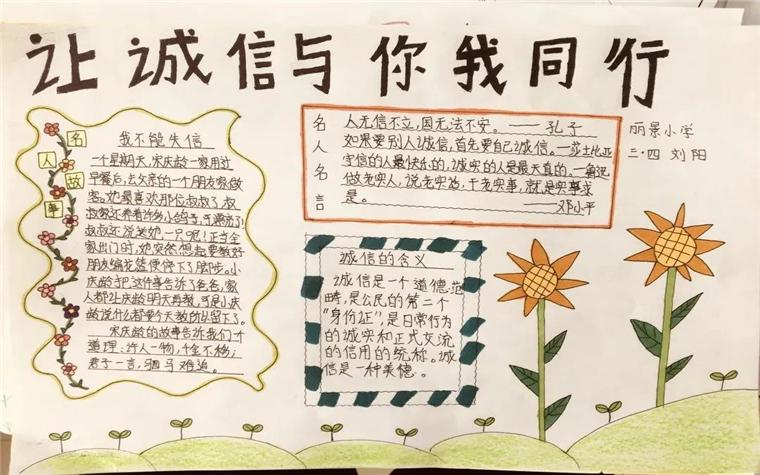 让诚信与你我同行
名人故事
我不能失信
一个星期天，宋庆龄一家用过
早餐后，去父亲的一个朋友家做
客。她最喜欢那位叔叔了，叔
叔家还养着许多小鸽子，可漂亮了！
叔叔还说送她一只呢！正当全
家出门时，她突然想起要教好
朋友编花篮便停下了脚步。小
庆龄把这件事告诉了爸爸，家
人都让庆龄明天再教，可是小庆
龄说什么都要今天教所以留下了。
宋庆龄的故事告诉我们个
道理：许人一物，千金不移；
君子一言，驷马难追。
名人名言
人无信不立，国无法不安。——孔子
如果要别人诚信，首先要自己诚信。—莎士比亚
守信的人最快乐的，诚实的人是最天真的。—
做老实人，说老实话，干老实事，就是实事求
是。——邓小平
丽景小学
三·四 刘阳
诚信的含义
诚信是一个道德范
畴，是公民的第二个
“身份证”，是日常行为
的诚实和正式交流
的信用的统称。诚
信是一种美德。